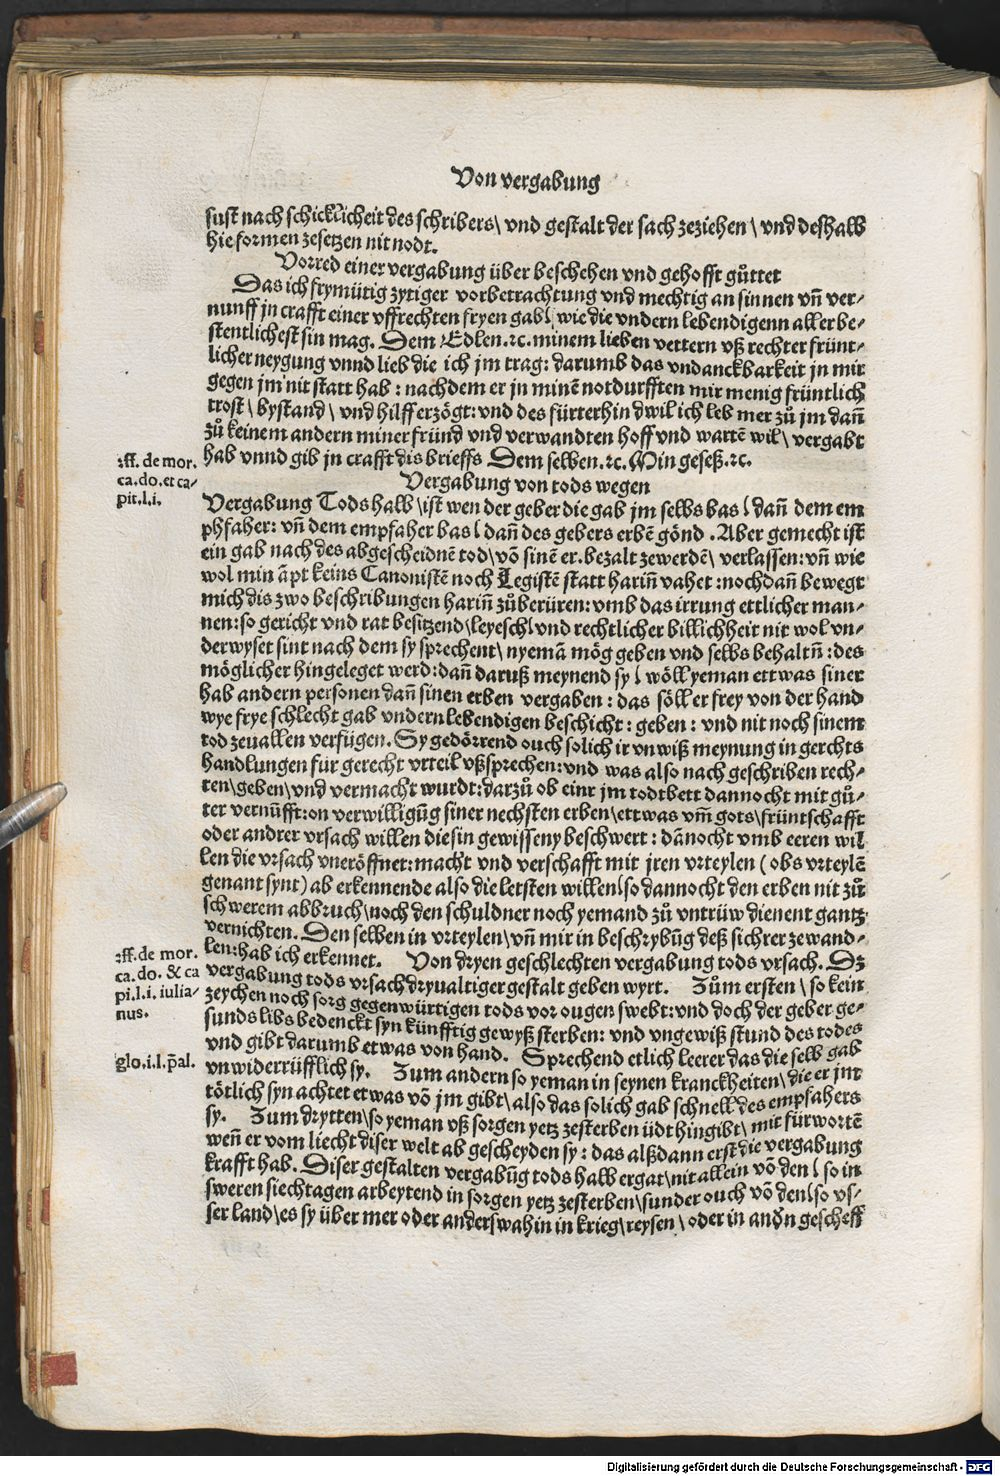 Von vergabung
sust nach schicklicheit des schribers\ vnd gestalt der sach zeziehen \ vnd deshalb
hie formen zesetzen nit nodt.
Vorred einer vergabung über beschehen vnd gehofft gůttet
Das ich frymütig zytiger vorbetrachtung vnd mechtig an sinnen vñ ver⸗
nunff jn crafft einer vffrechten fryen gab\ wie die vndern lebendigenn aller be⸗
stentlichest sin mag. Dem Edlen.ꝛc. minem lieben vettern vß rechter frünt⸗
licher neygung vnnd lieb die ich jm trag: darumb das vndanckbarkeit jn mir
gegen jm nit statt hab : nachdem er jn minē notdurfften mir menig früntlich
trost \ bystand \ vnd hilff erzögt: vnd des fürterhin dwil ich leb mer zů jm dañ
zů keinem andern miner fründ vnd verwandten hoff vnd wartē wil\ vergabt
hab vnnd gib jn crafft dis brieffs Dem selben.ꝛc. Min geseß.ꝛc.
:ff. de mor.
ca.do.et ca-
pit.l.i.
Vergabung von tods wegen
Vergabung Tods halb \ ist wen der geber die gab jm selbs bas\ dañ dem em
phfaher: vñ dem empfaher bas\ dañ des gebers erbē gönd . Aber gemecht ist
ein gab nach des abgescheidnē tod\ võ sinē er. bezalt zewerdē\ verlassen: vñ wie
wol min āpt keins Canonistē noch Legistē statt hariñ vahet : nochdañ bewegt
mich dis zwo beschribungen hariñ zůberüren: vmb das irrung ettlicher man⸗
nen: so gericht vnd rat besitzend\ leyesch\ vnd rechtlicher billichheit nit wol vn⸗
derwyset sint nach dem sy sprechent\ nyemā mög geben vnd selbs behaltñ : des
möglicher hingeleget werd: dañ daruß meynend sy\ wöll yeman ettwas siner
hab andern personen dañ sinen erben vergaben : das söll er frey von der hand
wye frye schlecht gab vndern lebendigen beschicht : geben : vnd nit noch sinem
tod zeuallen verfügen. Sy gedörrend ouch solich ir vnwiß meynung in gerchts
handlungen für gerecht vrteil vßsprechen: vnd was also nach geschriben rech⸗
ten\ geben\ vnd vermacht wurdt: darzů ob einr jm todtbett dannocht mit gů⸗
ter vernūfft: on verwilligūg siner nechsten erben\ ettwas vm̄ gots\ früntschafft
oder andrer vrsach willen die sin gewisseny beschwert : dānocht vmb eeren wil
len die vrsach vneröffnet: macht vnd verschafft mit jren vrteylen ( obs vrteylē
genant synt) ab erkennende also die letsten willen\ so dannocht den erben nit zů
schwerem abbruch\ noch den schuldner noch yemand zů vntrüw dienent gantz
vernichten. Den selben in vrteylen\ vñ mir in beschrybūg deß sichrer zewand⸗
len: hab ich erkennet. Von dryen geschlechten vergabung tods vrsach. Dz
:ff. de mor.
ca.do. & ca
pi.l.i. iulia-
nus.
vergabung tods vrsach dryualtiger gestalt geben wyrt. Zům ersten \ so kein
zeychen noch sorg gegenwürtigen tods vor ougen swebt: vnd doch der geber ge⸗
sunds libs bedenckt syn künfftig gewyß sterben: vnd vngewiß stund des todes
vnd gibt darumb etwas von hand. Sprechend etlich leerer das die selb gab
vnwiderrüfflich sy. Zum andern so yeman in seynen kranckheiten\ die er jm
glo.i.l.p̄al.
tötlich syn achtet etwas võ jm gibt\ also das solich gab schnell des empfahers
sy. Zum drytten\ so yeman vß sorgen yetz zesterben üdt hingibt\ mit fürwortē
weñ er vom liecht diser welt ab gescheyden sy : das alßdann erst die vergabung
krafft hab. Diser gestalten vergabūg tods halb ergat\ nit allein võ den\ so in
sweren siechtagen arbeytend in sorgen yetz zesterben\ sunder ouch võ den\ so vs⸗
ser land\ es sy über mer oder anderswahin in krieg\ reysen \ oder in and̃n gescheff
Digitalisierung gefördert durch die Deutsche Forschungsgemeinschaft - DFG